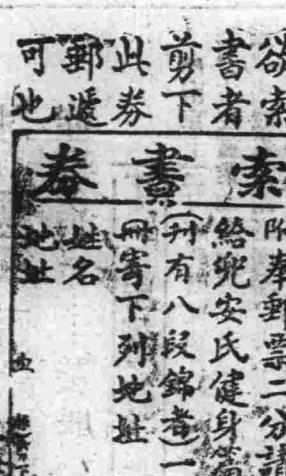 欲索
書者
剪下
此券
郵遞
可也
索書券
附奉郵票二分請
給兜安氏健身
(刋有八段錦者)一
冊寄下列地址
姓名
地址